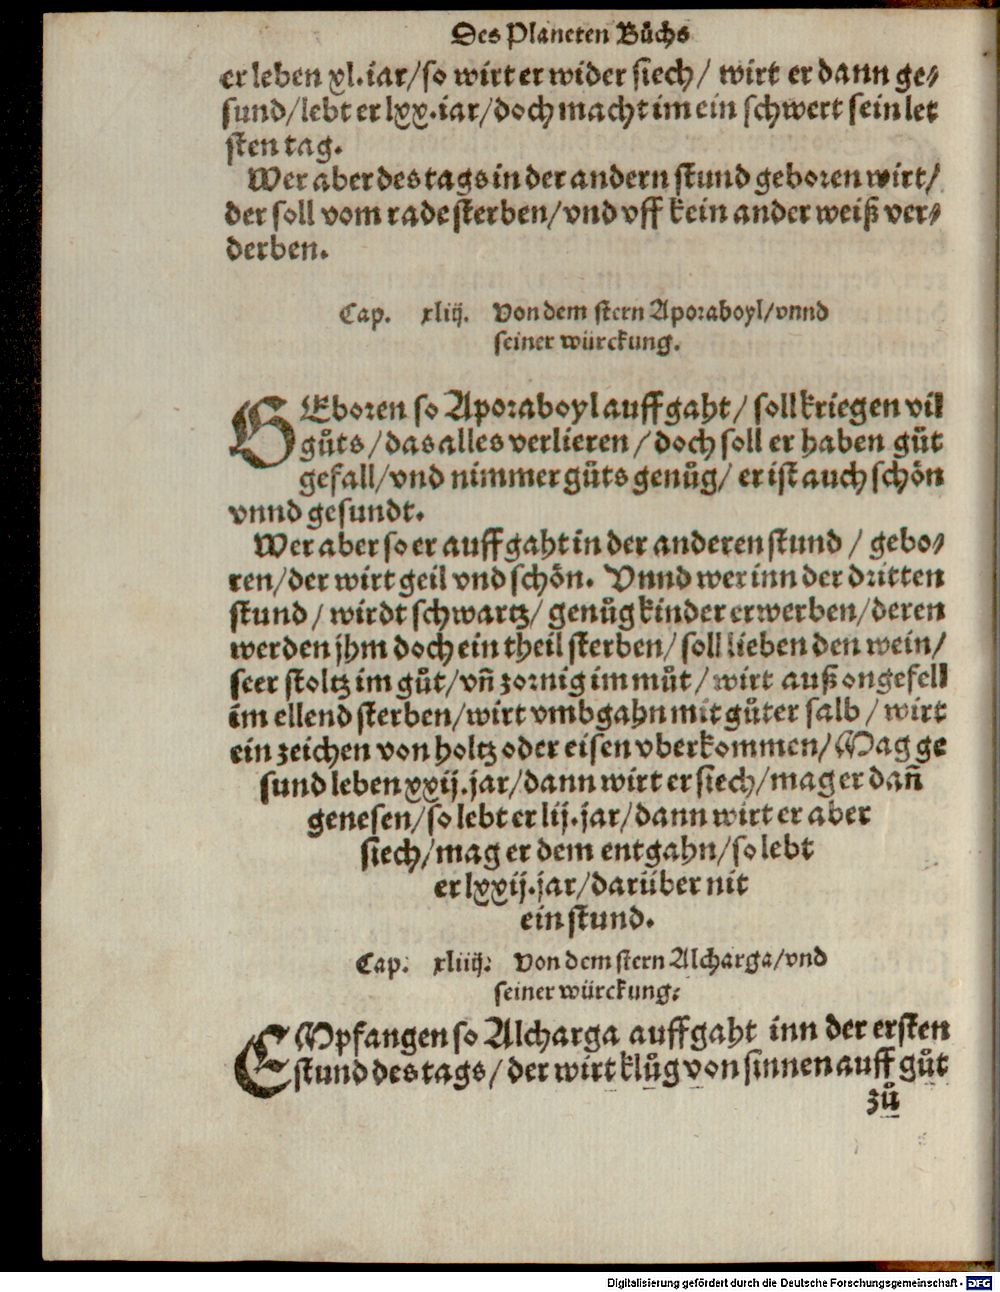 Des Planeten Bůchs
er leben xl.iar/so wirt er wider siech/ wirt er dann ge⸗
sund/lebt er lxx.iar/doch macht im ein schwert sein let
sten tag.
Wer aber des tags in der andern stund geboren wirt/
der soll vom rade sterben/vnd vff kein ander weiß ver⸗
derben.
Cap. xliij. Von dem stern Aporaboyl/vnnd
seiner würckung.
GEboren so Aporaboyl auffgaht/ soll kriegen vil
gůts/das alles verlieren/doch soll er haben gůt
gefall/vnd nimmer gůts genůg/ er ist auch schön
vnnd gesundt.
Wer aber so er auffgaht in der anderen stund / gebo⸗
ren/der wirt geil vnd schön. Vnnd wer inn der dritten
stund / wirdt schwartz/ genůg kinder erwerben/deren
werden jhm doch ein theil sterben/ soll lieben den wein/
seer stoltz im gůt/vñ zornig im můt/ wirt auß ongefell
im ellend sterben/wirt vmbgahn mit gůter salb / wirt
ein zeichen von holtz oder eisen vberkommen/ Mag ge
sund leben xxij.jar/dann wirt er siech/mag er dañ
genesen/so lebt er lij.jar/dann wirt er aber
siech/mag er dem entgahn/so lebt
er lxxij.jar/darüber nit
ein stund.
Cap. xliiij. Von dem stern Alcharga/vnd
seiner würckung.
EMpfangen so Alcharga auffgaht inn der ersten
stund des tags/ der wirt klůg von sinnen auff gůt
zů
Digitalisierung gefördert durch die Deutsche Forschungsgemeinschaft - DFG